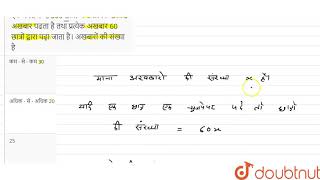 अखबार पढता है तथा प्रत्येक अखबार 60
छात्रो द्वारा पढ़ा जाता है। अखबारों की संख्या
है
कम - से - कम 30
अधिक - से - अधिक 20
25
माना अखबारो की संख्या x है।
यदि एक छात्र एक पढ़े तो
की संख्या = 60x
doubtnut